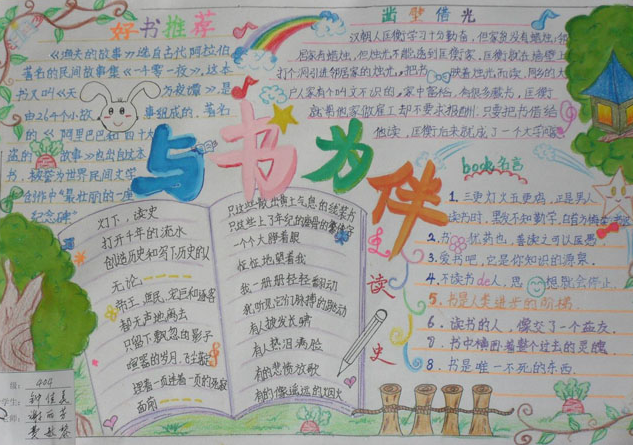 好书推荐
《渔夫的故事》选自古代阿拉伯
著名的民间故事集《一千零一夜》，这本
书又叫《天方夜谭》，是
由264个小故事组成的，著名
的《阿里巴巴和四十大
盗的故事》也出自这本
书，被誉为世界民间文学
创作中"最壮丽的一座
纪念碑"
凿壁借光
汉朝人匡衡学习十分勤奋，但家贫没有蜡烛，邻
居家有蜡烛，但烛光不能透到匡衡家，匡衡就在墙壁上
打个洞引进邻居家的烛光，把书映着烛光而读，同乡的大
户人家有个叫文不识的，家中富裕，有很多藏书，匡衡
就帮他家做雇工却不要求报酬，只要把书借给
他读，匡衡后来就成了一个大学
与书为伴
灯下，读史
打开千年的流水
创造历史和写下历史的人
无论
帝王，庶民，宠臣和逐客
都无声地离去
只留下飘忽的影子
喧嚣的岁月，飞尘散
望着一页连着一页的死寂
面前
只这些散出黄土气息的线装书
只这些上了年纪的瘦骨的繁体字
一个大瞪着眼
怔怔地望着我
我一册册轻轻翻动
我听见它们脉搏的跳动
有人披发长啸
有人热泪满脸
有的悲愤放歌
有的像遥远的烟火
读史
book名言
1. 三更灯火五更鸡，正是男人
读书时，黑发不知勤学早，白首方悔读书迟
2. 书犹药也，善读之可以医愚
3. 爱书吧，它是你知识的源泉.
4. 不读书de人，思想就会停止.
5. 书是人类进步的阶梯.
6. 读书的人，像交了一个益友.
7. 书中横卧着整个过去的灵魂
8. 书是唯一不死的东西.
级：404
学生：钟佳
谢